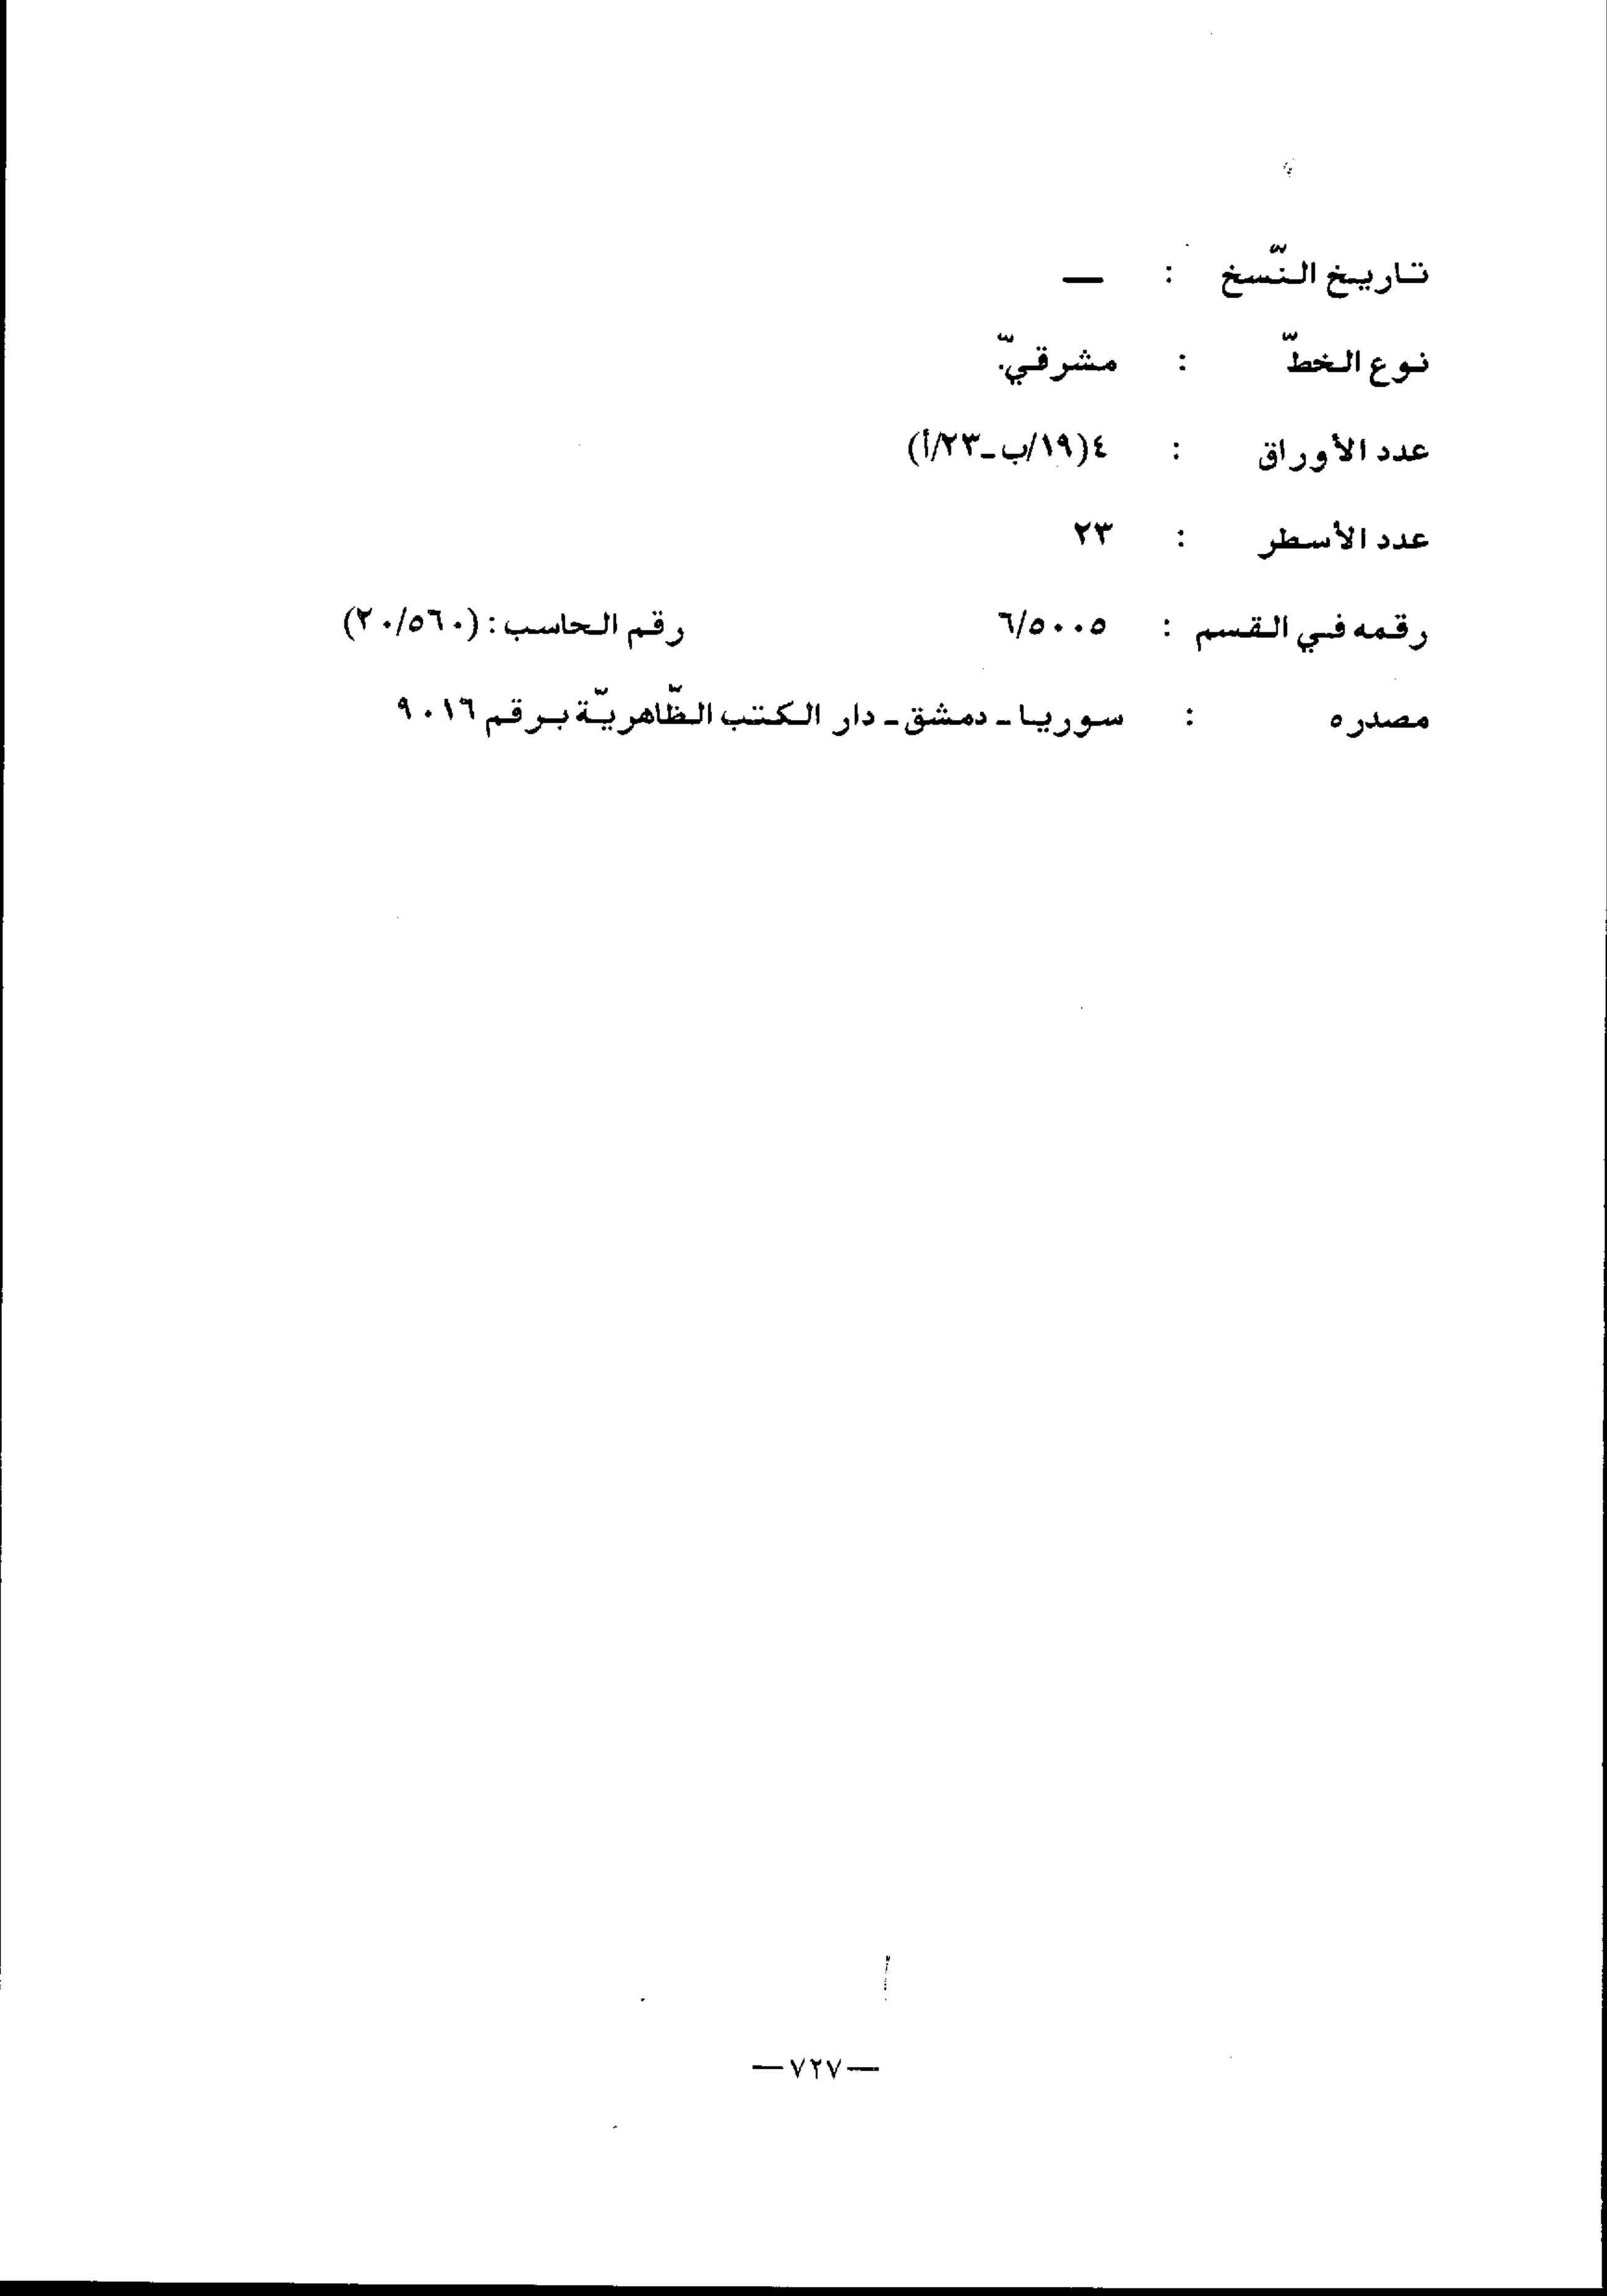 تاريخ النّسخ : —
نوع الخطّ : مشرقيّ.
عدد الأوراق : ٤(١٩/ب ـ ٢٣/أ)
عدد الأسطر : ٢٣
رقمه في القسم : ٦/٥٠٠٥ رقم الحاسب : (٢٠/٥٦٠)
مصدره : سوريا ـ دمشق ـ دار الكتب الظّاهريّة برقم ٩٠١٦
—٧٢٧—